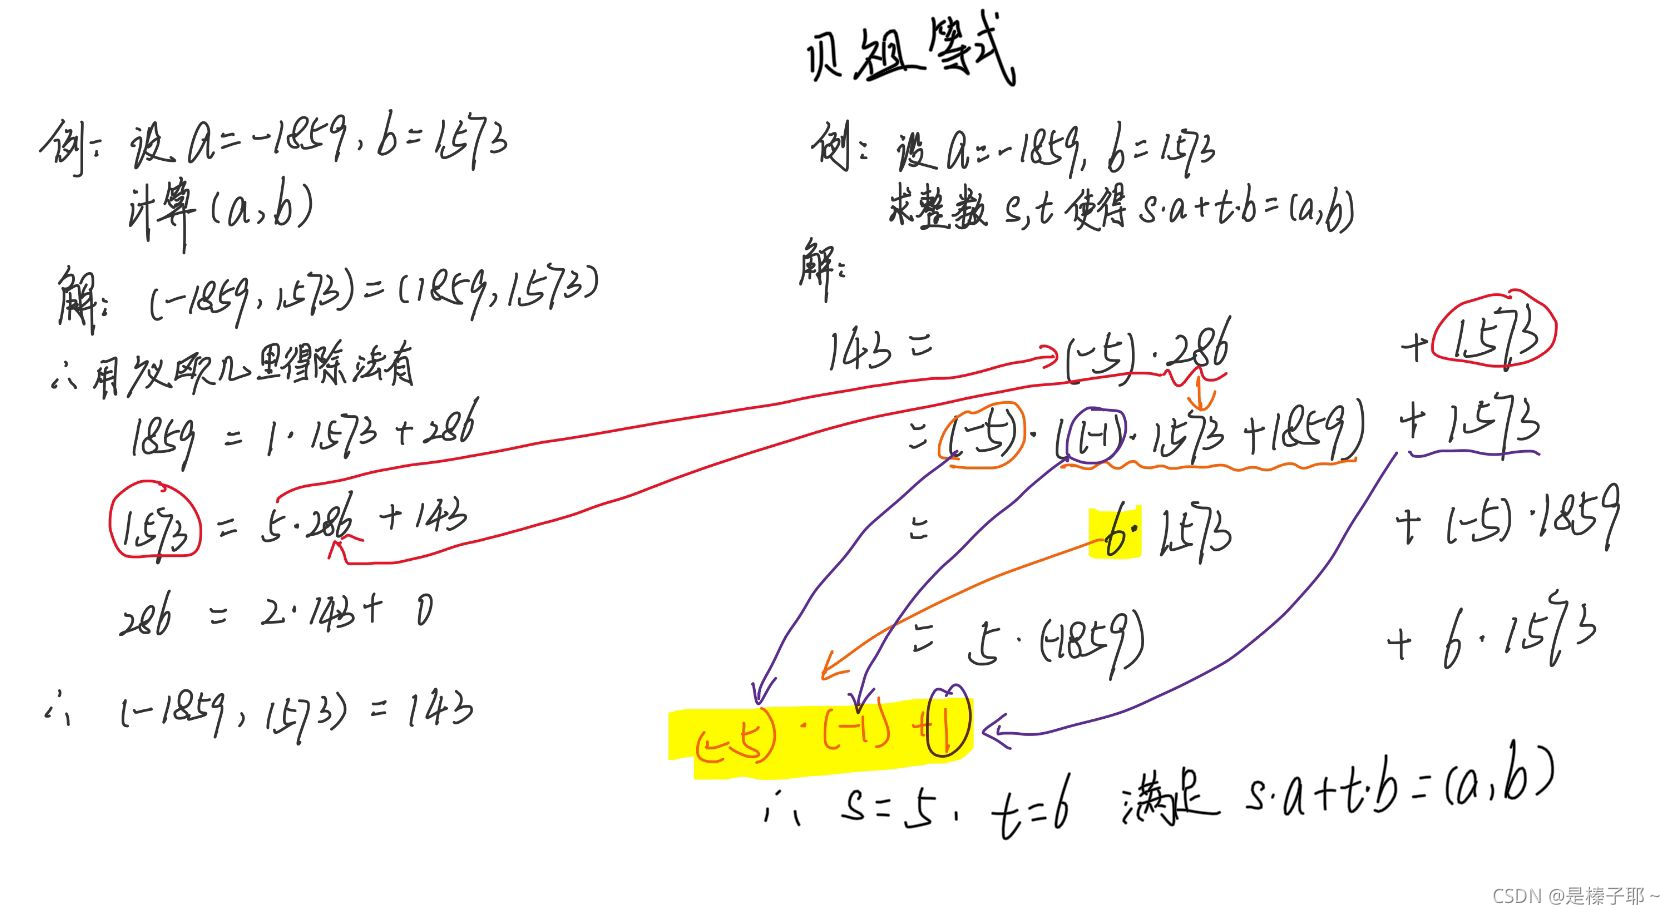 贝祖等式
例: 设 a=-1859, b=1573
计算(a,b)
解: (-1859, 1573)=(1859, 1573)
∴ 用广义欧几里得除法有
1859 = 1·1573+286
1573 = 5·286 + 143
286 = 2·143+ 0
∴ (-1859, 1573) = 143
例: 设 a=-1859, b=1573
求整数 s,t 使得 s·a+t·b=(a,b)
解:
143 = (-5)·286 + 1573
= (-5)·((-1)·1573+1859) + 1573
= 6·1573 + (-5)·1859
= 5·(-1859) + 6·1573
(-5)·(-1)+1
∴ s=5, t=6 满足 s·a+t·b=(a,b)
CSDN @是榛子耶~